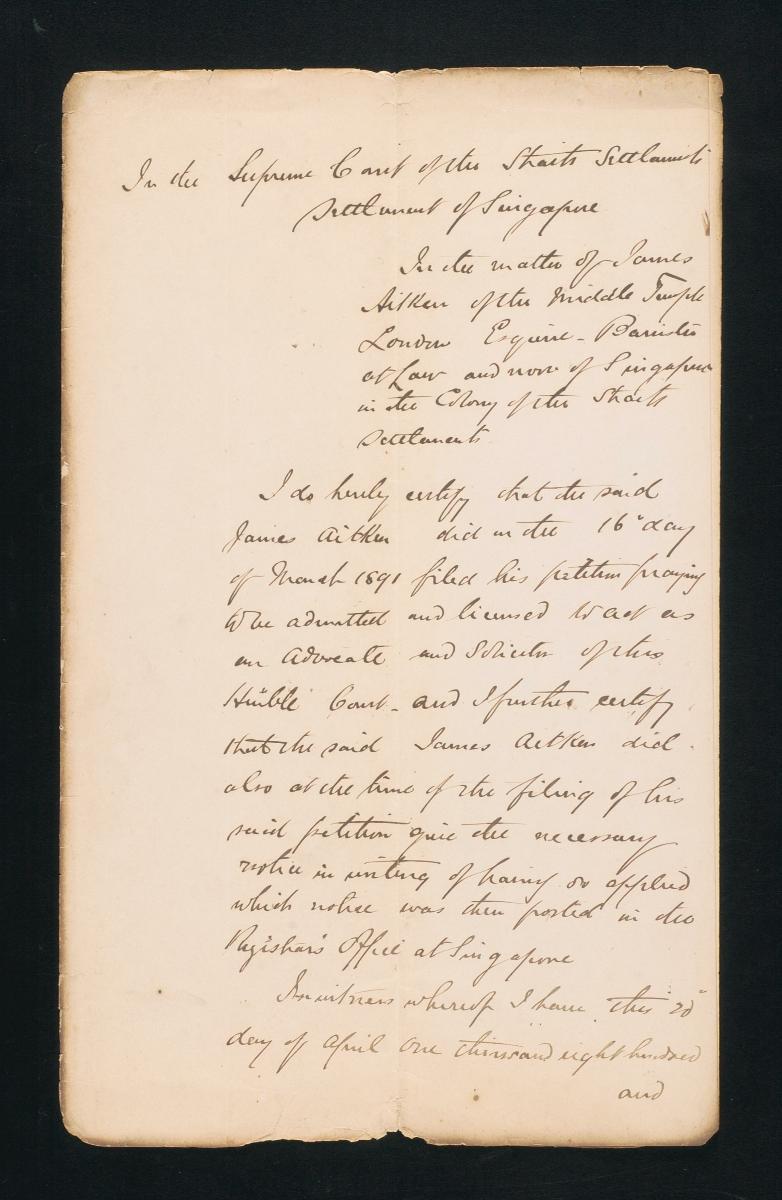 In the Supreme Court of the Straits Settlements
Settlement of Singapore
In the matter of James
Aitken of the Middle Temple
London Esquire - Barrister
at Law and now of Singapore
in the Colony of the Straits
Settlements
I do hereby certify that the said
James Aitken did on the 16" day
of March 1891 filed his petition praying
to be admitted and licensed to act as
an Advocate and Solicitor of this
Hüble Court - and I further certify
that the said James Aitken did
also at the time of the filing of his
said petition give the necessary
notice in writing of having so applied
which notice was then posted in the
Registrar's Office at Singapore
In witness whereof I have this 20"
day of April one thousand eight hundred
and